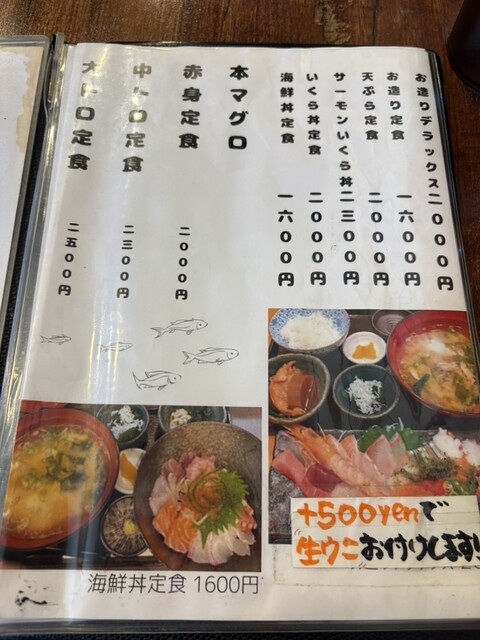 お造りデラックス二〇〇〇円
お造り定食 一六〇〇円
天ぷら定食 二〇〇〇円
サーモンいくら丼二三〇〇円
いくら丼定食 二〇〇〇円
海鮮丼定食 一六〇〇円
本マグロ
赤身定食 二〇〇〇円
中トロ定食 二三〇〇円
大トロ定食 二五〇〇円
+500yenで
生ウニお付けします!
海鮮丼定食 1600円